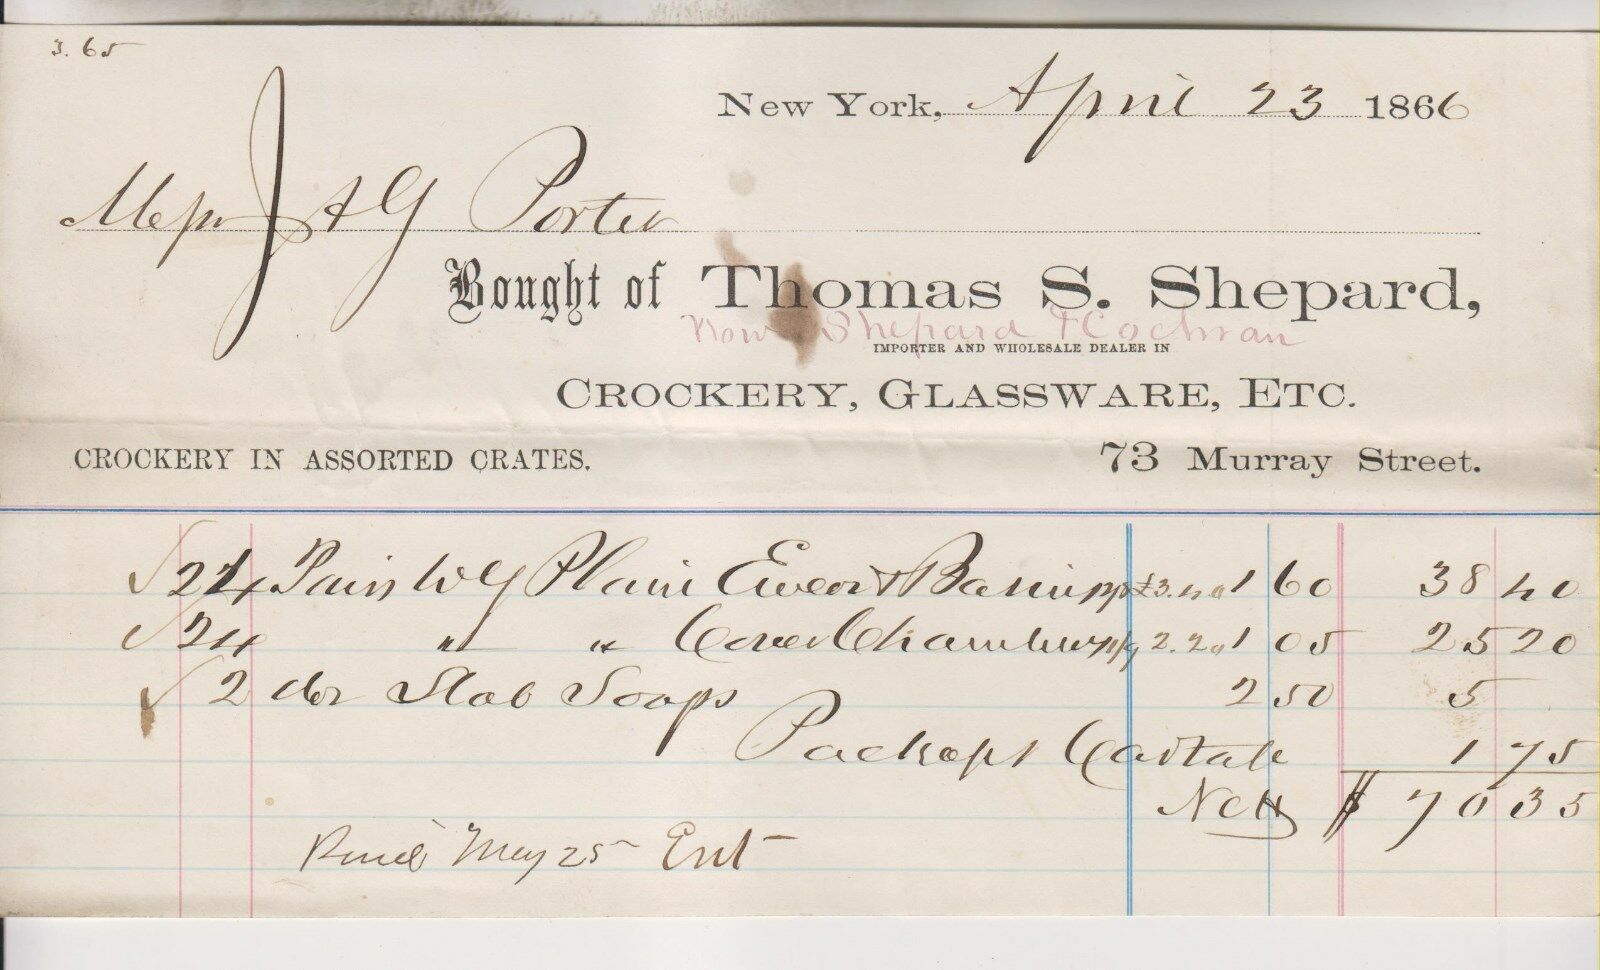 3.65
New York, April 23 1866
Messrs J & G Porter
Bought of Thomas S. Shepard,
Now Shepard & Cochran
IMPORTER AND WHOLESALE DEALER IN
CROCKERY, GLASSWARE, ETC.
CROCKERY IN ASSORTED CRATES. 73 Murray Street.
24 Pairs WG Plain Ewer & Basin 1 60 38 40
24 " " Cover Chambers 1 05 25 20
2 doz Slab Soaps 2 50 5
Cartage 1 75
Nett $ 70 35
May 25 Ent